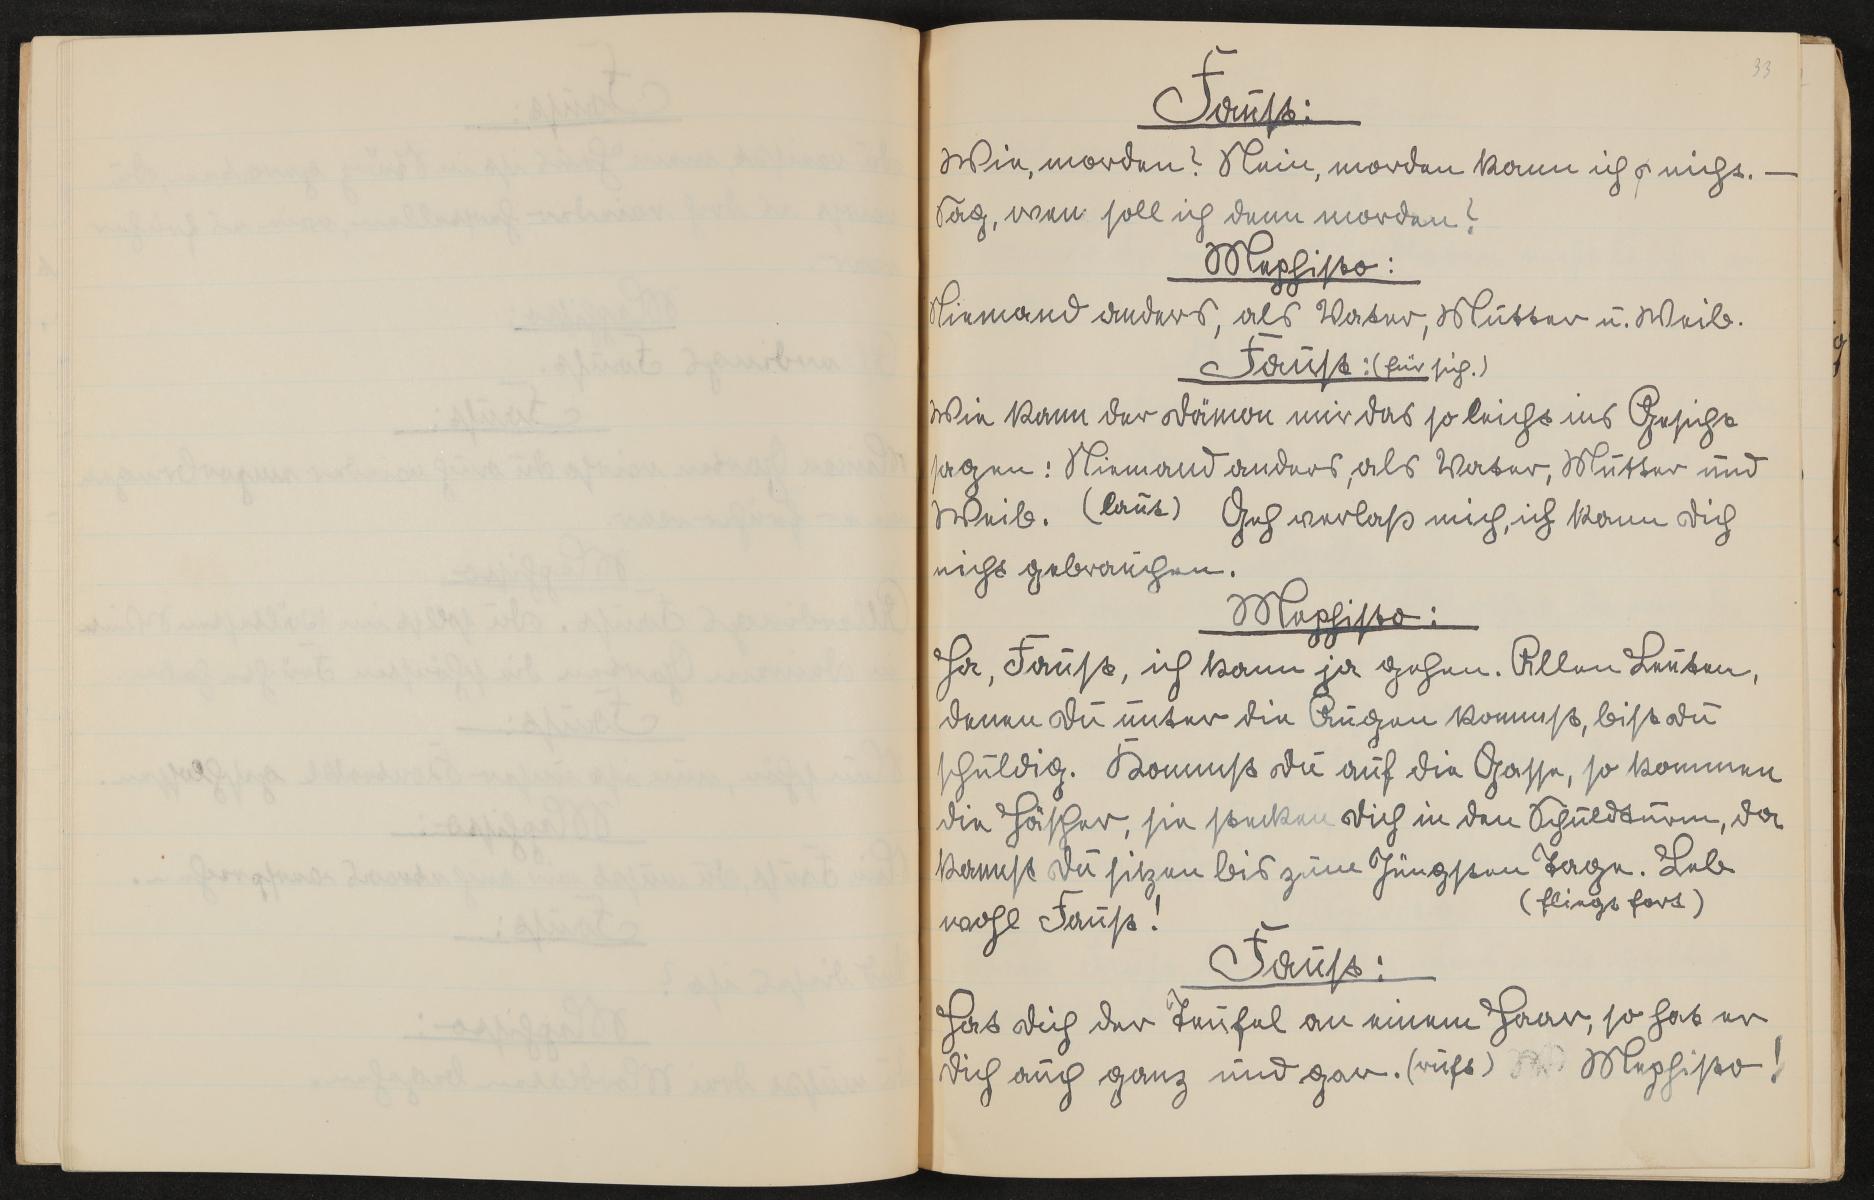 33
Faust:
Wie, morden? Nein, morden kann ich nicht. —
Sag, wen soll ich denn morden?
Mephisto:
Niemand anders, als Vater, Mutter u. Weib.
Faust: (für sich.)
Wie kann der Dämon mir das so leicht ins Gesicht
sagen: Niemand anders, als Vater, Mutter und
Weib. (laut) Geh verlaß mich, ich kann dich
nicht gebrauchen.
Mephisto:
Ha, Faust, ich kann ja gehen. Allen Leuten,
denen du unter die Augen kommst, bist du
schuldig. Kommst du auf die Gasse, so kommen
die Häscher, sie stecken dich in den Schuldturm, da
kannst du sitzen bis zum Jüngsten Tage. Leb
wohl Faust! (fliegt fort)
Faust:
Hat dich der Teufel an einem Haar, so hat er
dich auch ganz und gar. (ruft) Mephisto!